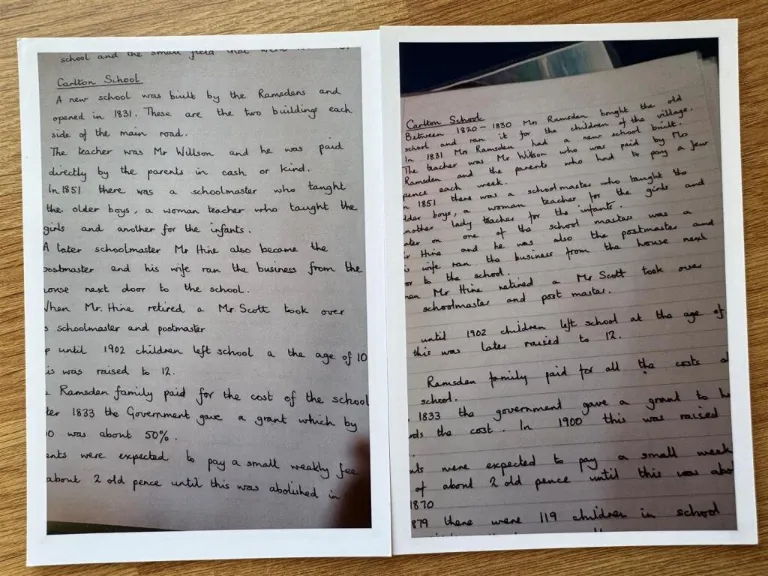 school and the small field that
Carlton School
A new school was built by the Ramsdens and
opened in 1831. These are the two buildings each
side of the main road.
The teacher was Mr Willson and he was paid
directly by the parents in cash or kind.
In 1851 there was a schoolmaster who taught
the older boys, a woman teacher who taught the
girls and another for the infants.
A later schoolmaster Mr Hine also became the
postmaster and his wife ran the business from the
orse next door to the school.
When Mr. Hine retired a Mr Scott took over
s schoolmaster and postmaster
until 1902 children left school a the age of 10
is was raised to 12.
Ramsden family paid for the cost of the school
ter 1833 the Government gave a grant which by
0 was about 50%.
ents were expected to pay a small weakly fee
about 2 old pence until this was abolished in
Carlton School
Between 1820-1830 Mrs Ramsden bought the old
school and ran it for the children of the village.
In 1831 Mrs Ramsden had a new school built.
The teacher was Mr Willson who was paid by Mrs
Ramsden and the parents who had to pay a few
pence each week.
n 1851 there was a schoolmaster who taught the
lder boys, a woman teacher for the girls and
nother lady teacher for the infants.
ater on one of the school masters was a
r Hine and he was also the postmaster and
is wife ran the business from the house next
or to the school.
hen Mr Hine retired a Mr Scott took over
schoolmaster and post master.
until 1902 children left school at the age of
this was later raised to 12.
Ramsden family paid for all the costs o
school.
1833 the government gave a grant to he
rds the cost. In 1900 this was raised
nts were expected to pay a small week
of about 2 old pence until this was abo
1870
879 there were 119 children in school